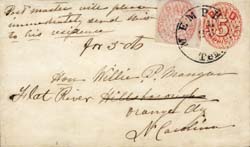 Post master will please
immediately send this
to his residence
for 5 cts
MEMPHIS
Ten.
PAID
5
Hon Willie P. Mangum
Flat River Hillsborough
Orange Co
N Carolina